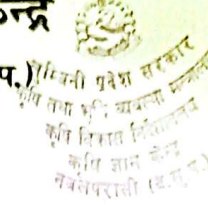 न्द्र
प.)
लुम्बिनी प्रदेश सरकार
कृषि तथा भूमि व्यवस्था मन्त्रालय
कृषि विकास निर्देशनालय
कृषि ज्ञान केन्द्र
नवलपरासी (ब.सु.प.)